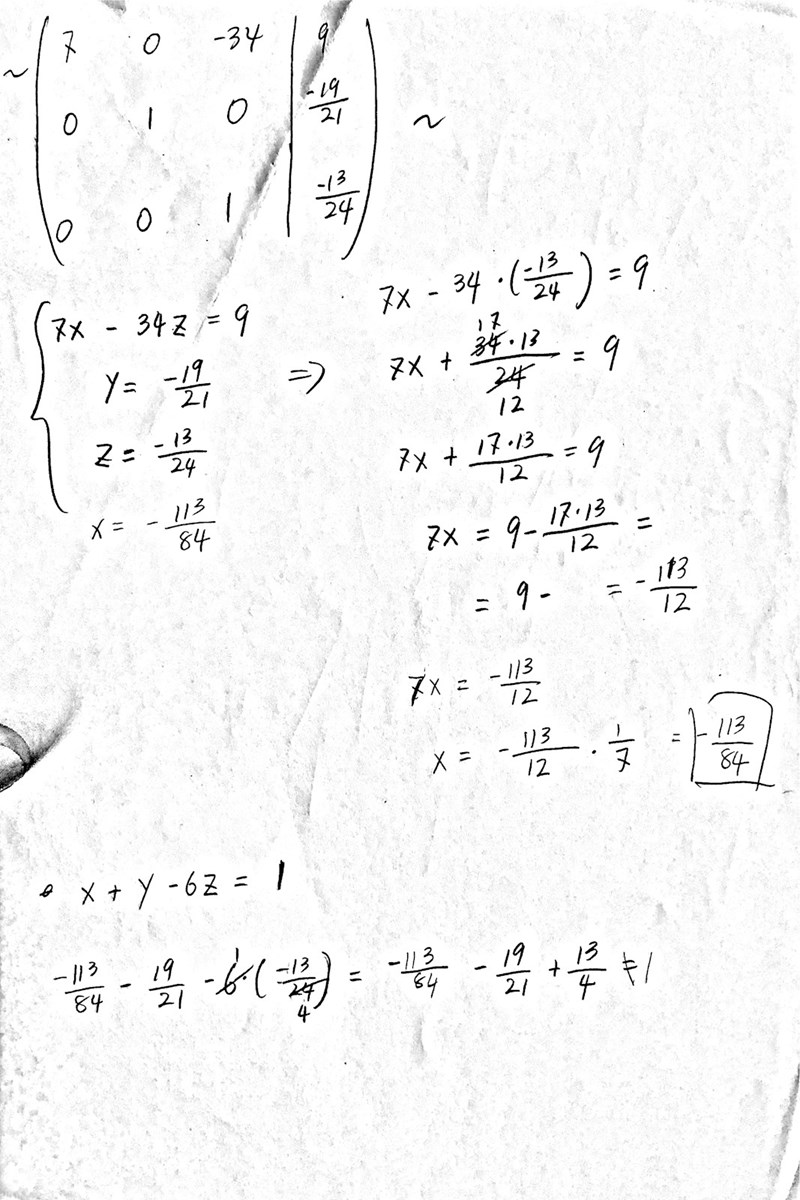 ~ ( 7 0 -34 | 9
0 1 0 | -19/21 ) ~
0 0 1 | -13/24
7x - 34·(-13/24) = 9
{ 7x - 34z = 9
y = -19/21 ⇒
z = -13/24
x = -113/84
7x + 34·13/24 = 9
17
12
7x + 17·13/12 = 9
7x = 9 - 17·13/12 =
= 9 - = -113/12
7x = -113/12
x = -113/12 · 1/7 = -113/84
• x + y - 6z = 1
-113/84 - 19/21 - 6·(-13/24) = -113/84 - 19/21 + 13/4 ≠ 1
1
4